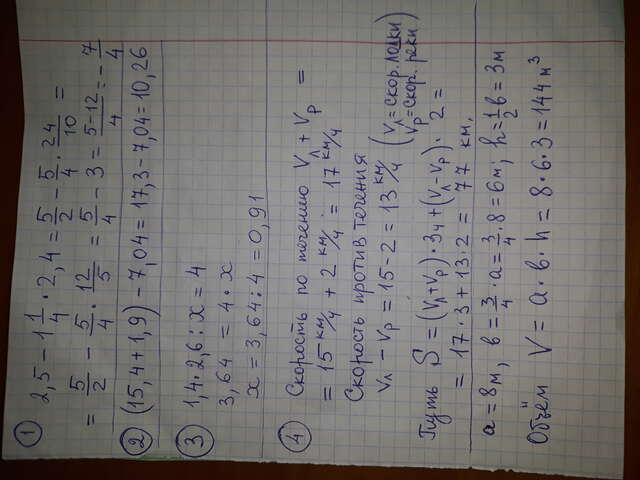 1
2,5 − 1 1/4 · 2,4 = 5/2 − 5/4 · 24/10 =
= 5/2 − 5/4 · 12/5 = 5/4 − 3 = (5−12)/4 = − 7/4
2 (15,4 + 1,9) − 7,04 = 17,3 − 7,04 = 10,26
3 1,4 · 2,6 : x = 4
3,64 = 4 · x
x = 3,64 : 4 = 0,91
4 Скорость по течению Vл + Vр =
= 15 км/ч + 2 км/ч = 17 км/ч
Скорость против течения
Vл − Vр = 15 − 2 = 13 км/ч (Vл = скор. лодки
Vр = скор. реки)
Путь S = (Vл + Vр) · 3ч + (Vл − Vр) · 2 =
= 17 · 3 + 13 · 2 = 77 км.
a = 8м, в = 3/4 · a = 3/4 · 8 = 6м; h = 1/2 в = 3м
Объём V = a · в · h = 8 · 6 · 3 = 144 м³